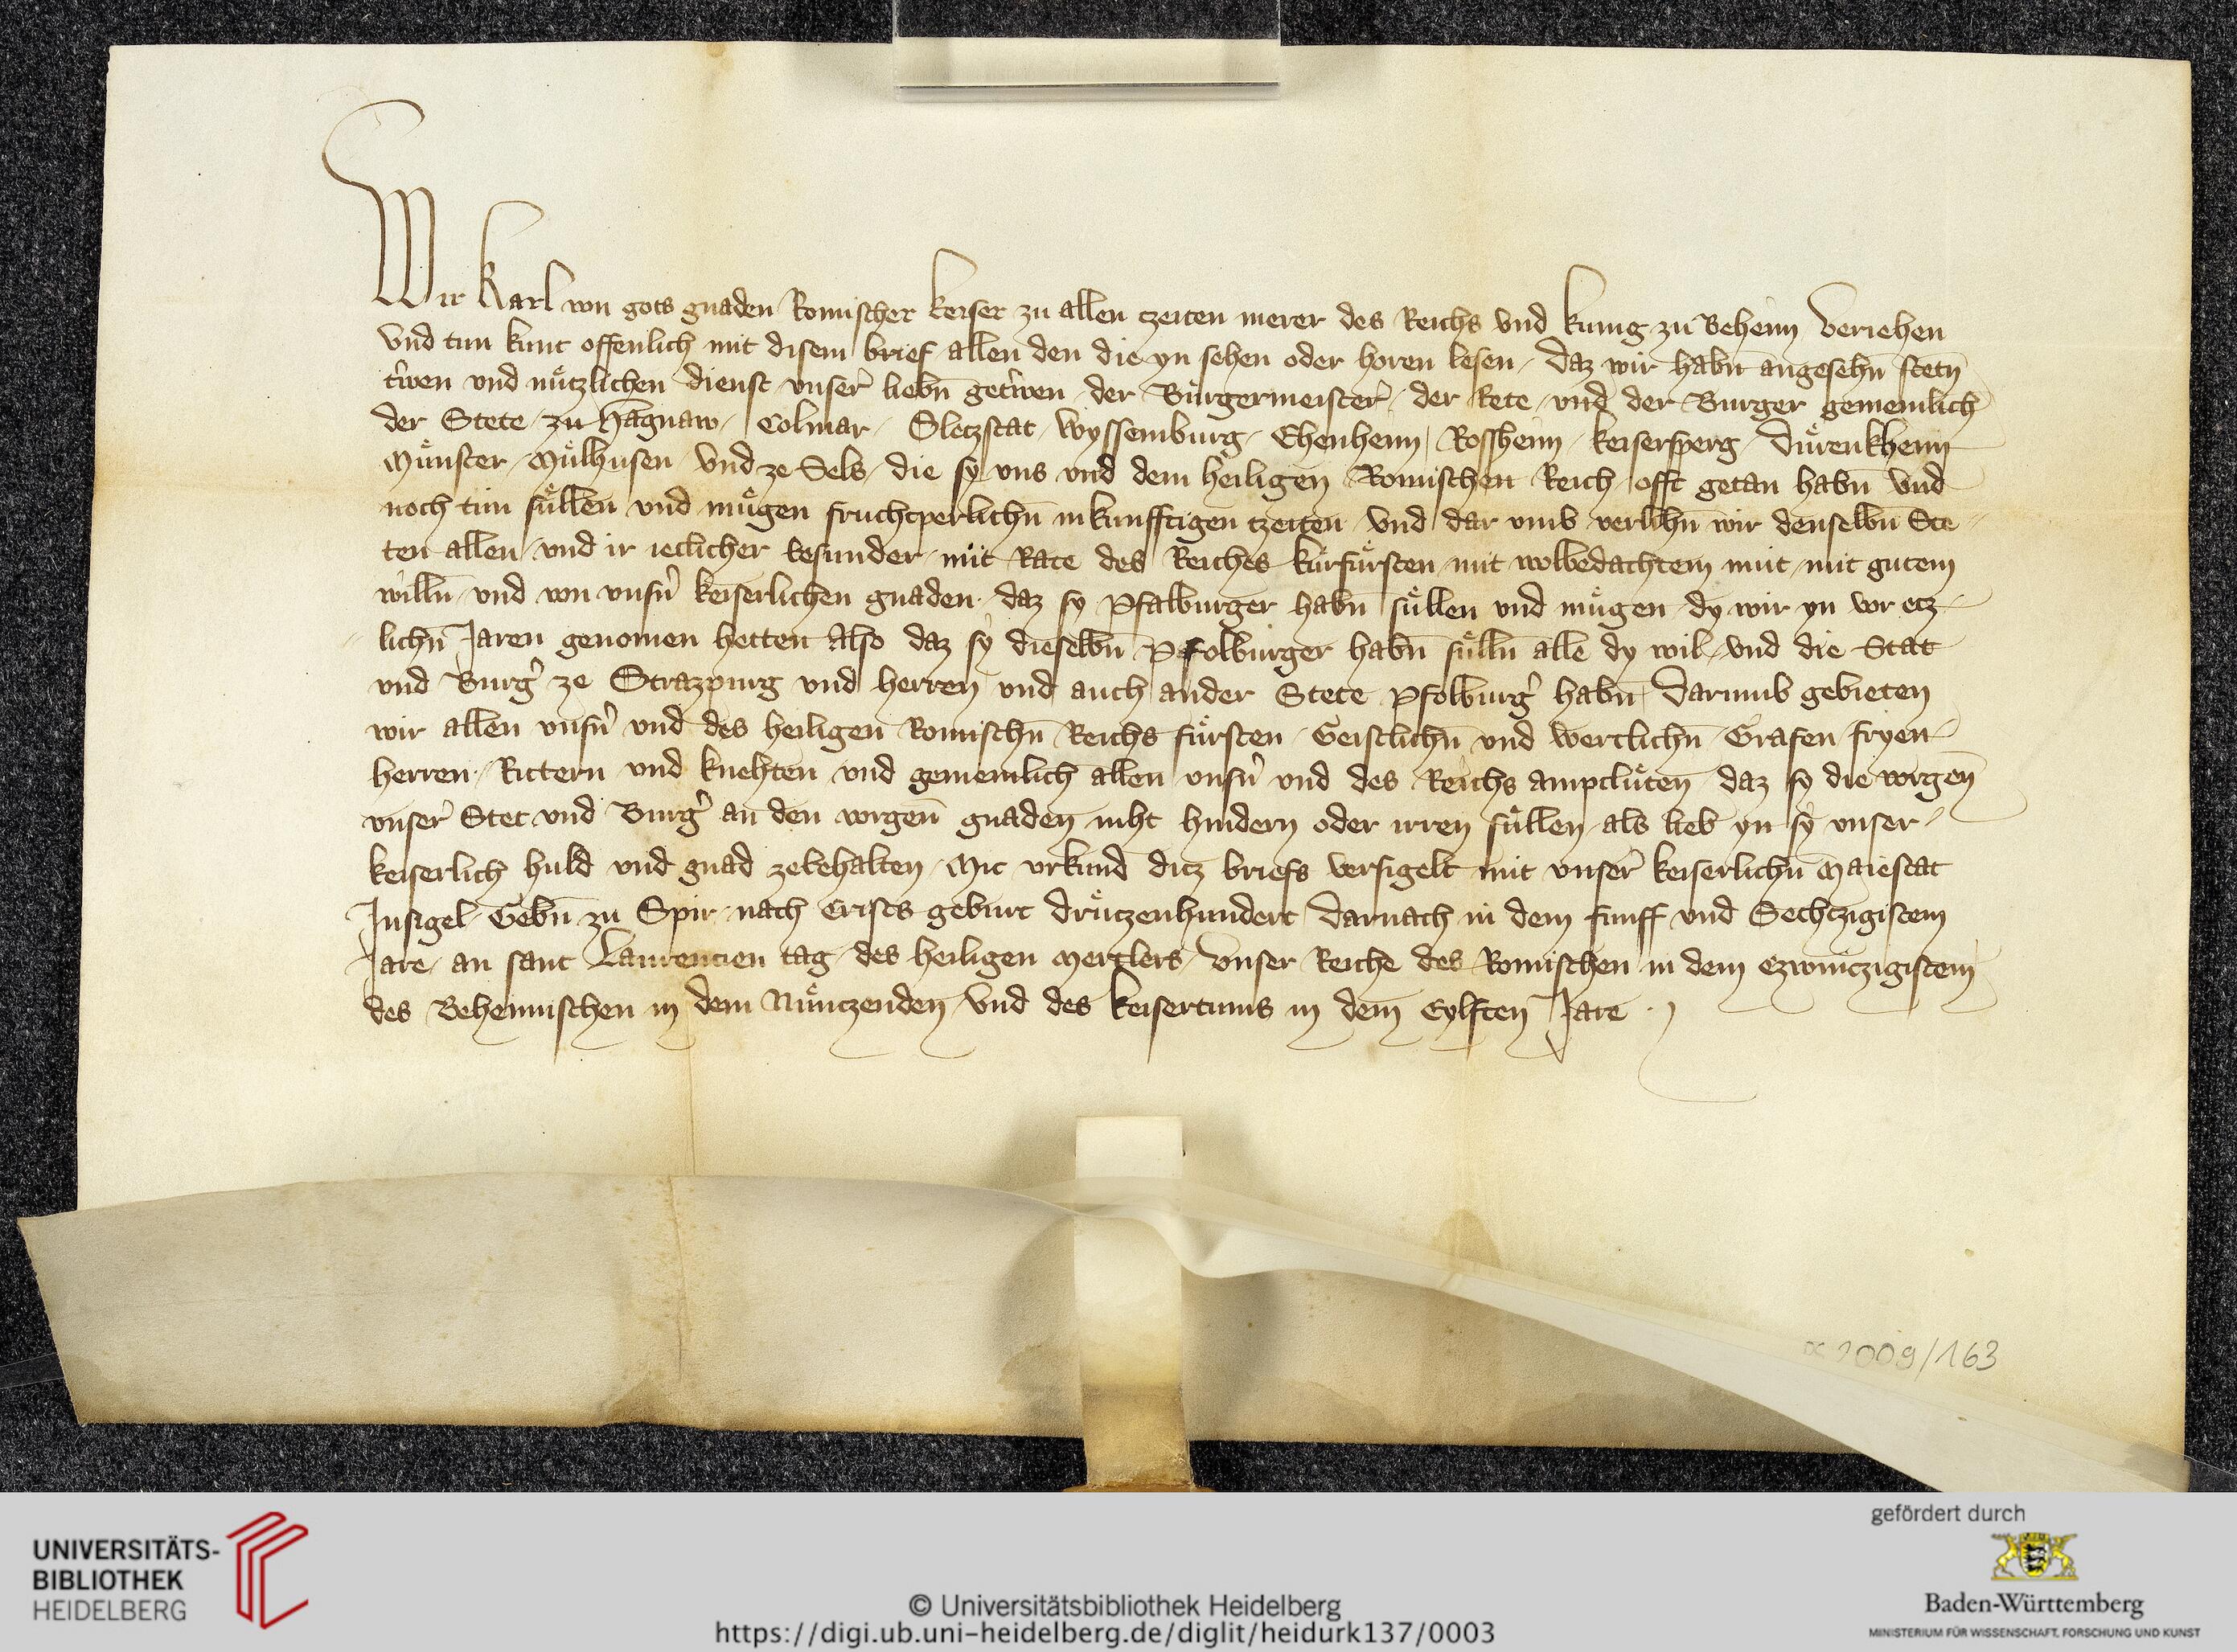 Wir Karl von gots gnaden Romischer keiser zu allen tzeiten merer des Reichs vnd kunig zu Beheim Veriehen
vnd tun kunt offenlich mit disem brief allen den die yn sehen oder horen lesen / daz wir habn̄ angesehn̄ stetn̄
trͥwen vnd nuͤtzlichen dienst vnserͥ liebn̄ getrͥwen der Burgermeisterͥ / der Rete / vnd der Burger gemeinlich
der Stete / zu Hagnaw / Colmar / Sletzstat / Wyssemburg / Ehenheim / Rossheim / keisersperg / Duͤrenkheim
Muͤnster / Muͤlhusen / vnd ze Sels / die sy vns vnd dem heiligen Romischen Reich / offt getan habn̄ vnd
noch tun suͤllen vnd muͤgen fruchtperlichn̄ in kunfftigen tzeiten / vnd dar vmb verlihn̄ wir denselbn̄ Ste
ten allen / vnd ir ieclicher besunder / mit Rate des Reiches kurfuͤrsten / mit wolbedachtem mut / mit gutem
willn̄ / vnd von vnsn̄ keiserlichen gnaden / daz sy Pfalburger habn̄ suͤllen vnd muͤgen / dy wir yn vor etz
lichn̄ Jaren genomen hetten Also daz sy dieselbn̄ Pfolburger habn̄ suͤlln̄ alle dy wil / vnd die Stat
vnd Burgͥ ze Strazpurg vnd herren vnd auch ander Stete Pfolburgͥ habn̄ / Darumb gebieten
wir allen vnsn̄ vnd des heiligen Romischn̄ Reichs fuͤrsten / Geistlichn̄ vnd wertlichn̄ / Grafen / fryen
herren / Rittern vnd knehten vnd gemeinlich allen vnsn̄ vnd des Reichs ampcluͤten / daz sy die vorgen̄
vnserͥ Stet vnd Burgͥ an den vorgen̄ gnaden niht hindern oder irren suͤllen / als lieb yn sy vnser
keiserlich huld vnd gnad zebehalten / Mit vrkund ditz briefs versigelt mit vnserͥ keiserlichn̄ Maiestat
Insigel / Gebn̄ zu Spir / nach Crists geburt druͤtzenhundert Darnach in dem funff vnd Sechtzigistem
Jare / an sant Laurentien tag / des heiligen Mertlers / vnser Reiche des Romischen in dem Czwuitzigistem
des Behemischen in dem Nuͤntzenden / vnd des keisertums in dem Eylften Jare
2009/163
UNIVERSITÄTS-
BIBLIOTHEK
HEIDELBERG
© Universitätsbibliothek Heidelberg
https://digi.ub.uni-heidelberg.de/diglit/heidurk137/0003
gefördert durch
Baden-Württemberg
MINISTERIUM FÜR WISSENSCHAFT, FORSCHUNG UND KUNST